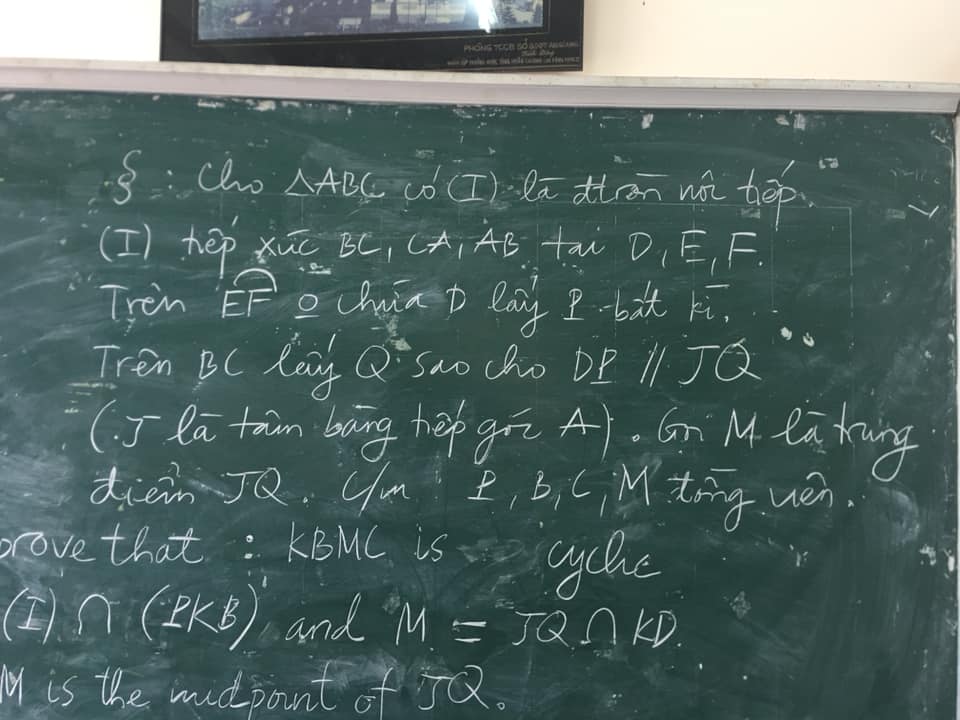 PHÒNG TCCB SỞ GDĐT AN GIANG
§ : Cho △ABC có (I) là đtròn nội tiếp.
(I) tiếp xúc BC, CA, AB tại D, E, F.
Trên EF o chứa D lấy P bất kì.
Trên BC lấy Q sao cho DP // JQ
(J là tâm bàng tiếp góc A). Gọi M là trung
điểm JQ. C/m P, B, C, M đồng viên.
prove that : KBMC is cyclic
(I) ∩ (PKB) and M = JQ ∩ KD.
M is the midpoint of JQ.